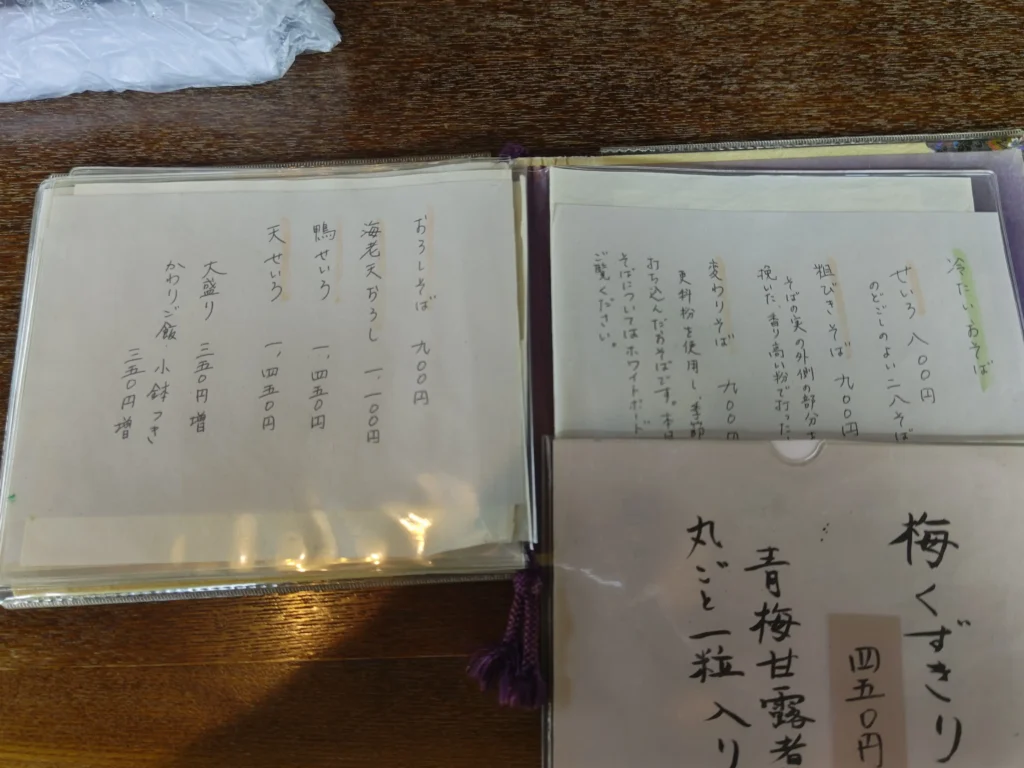 冷たいおそば
せいろ 八〇〇円
のどごしのよい二八そば
粗びきそば 九〇〇円
そばの実の外側の部分ま
挽いた、香り高い粉で打った
変わりそば 九〇〇円
更科粉を使用し、季節
打ち込んだおそばです。本日
そばについてはホワイトボード
ご覧ください。
おろしそば 九〇〇円
海老天おろし 一、一〇〇円
鴨せいろ 一、四五〇円
天せいろ 一、四五〇円
大盛り 三五〇円増
かわりご飯、小鉢つき
三五〇円増
梅くずきり
四五〇円
青梅甘露煮
丸ごと一粒入り